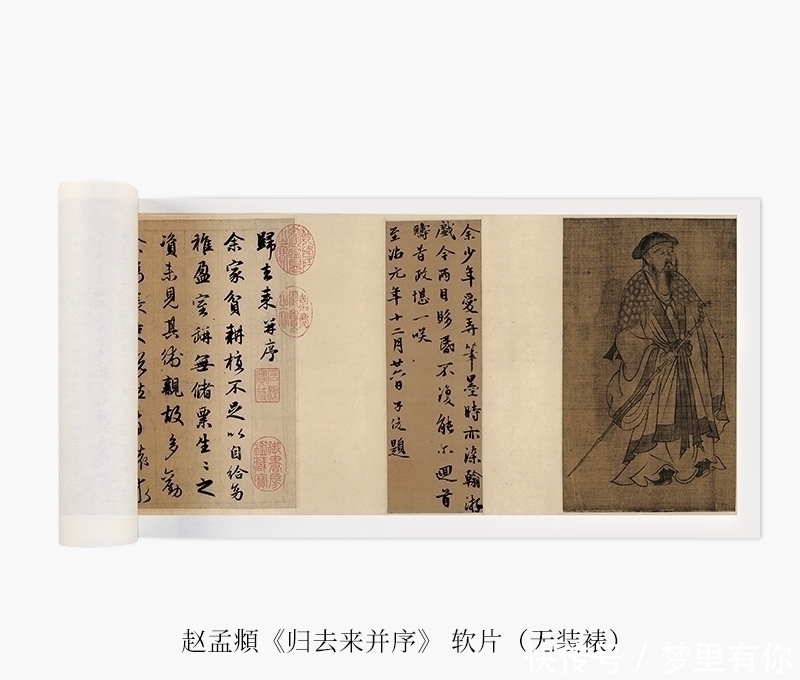 余少年愛弄筆墨時亦染翰游
戲今兩目眵昏不復能尔迴首
疇昔政堪一咲
至治元年十二月廿六日 子昂題
歸去来并序
余家貧耕植不足以自給幼
稚盈室缾無儲粟生〻之
資未見其術親故多勸
石渠寶笈
御書房鑑藏寶
赵孟頫《归去来并序》 软片（无装裱）
快传号 / 梦里有你